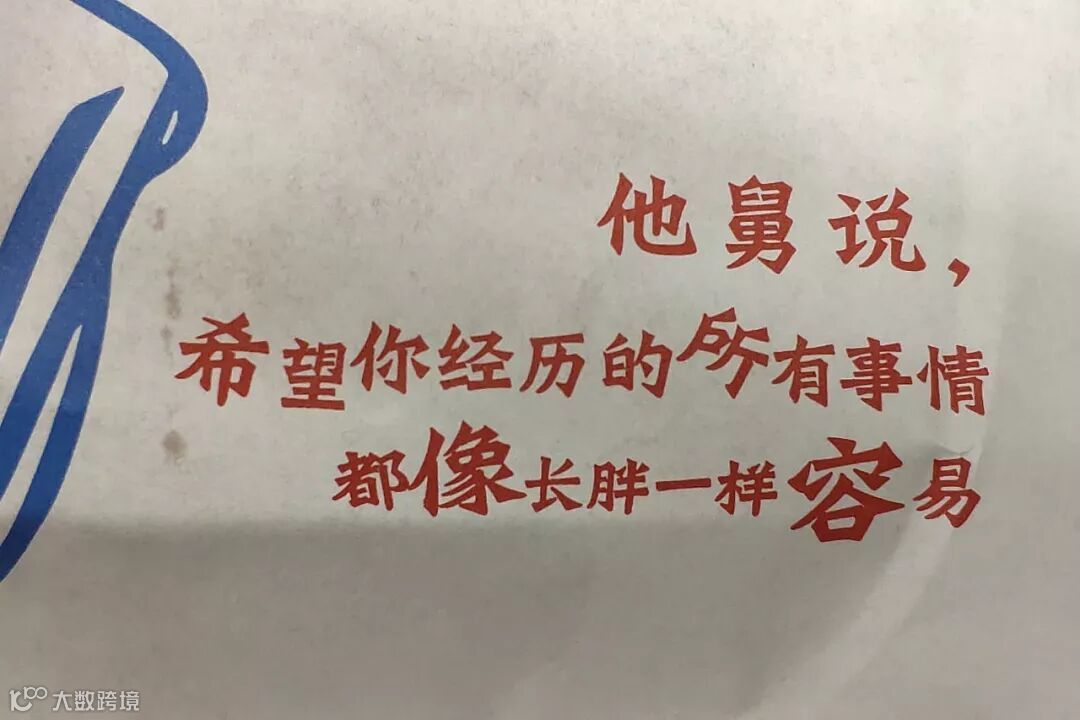 他舅说，
希望你经历的所有事情
都像长胖一样容易
大数跨境